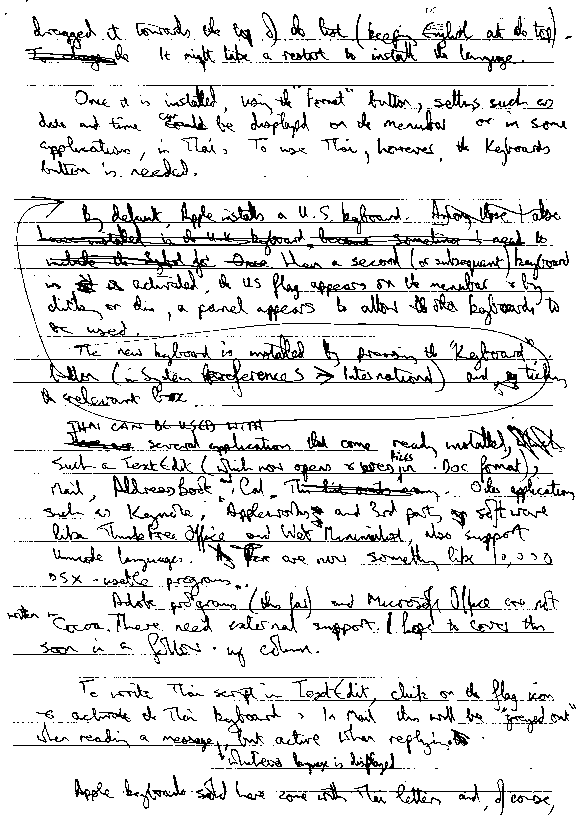 dragged it towards the top of the list (keeping English at the top).
It might take a restart to install the language.
Once it is installed, using the "Format" button, settings such as
date and time could be displayed on the menubar or in some
applications, in Thai. To use Thai, however, the Keyboards
button is needed.
By default, Apple installs a U.S. keyboard.
Once a second (or subsequent) keyboard
is activated, the US flag appears on the menubar & by
clicking on this, a panel appears to allow other keyboards to
be used.
The new keyboard is installed by pressing the "Keyboard"
button (in System Preferences > International) and ticking
the relevant box.
THAI CAN BE USED WITH
several applications that come ready installed,
such a TextEdit (which now opens & saves files in .Doc format),
Mail, Address Book, iCal. Other applications
such as Keynote, Appleworks and 3rd party software
like ThinkFree Office and Web Minimalist, also support
Unicode languages. There are now something like 10,000
OSX-usable programs.
Adobe programs (thus far) and Microsoft Office are not
written in Cocoa. These need external support. I hope to cover this
soon in a follow-up column.
To write Thai script in TextEdit, click on the flag icon
to activate the Thai keyboard. In Mail this will be "greyed out"
when reading a message, but active when replying.
Whatever language is displayed
Apple keyboards sold here come with Thai letters and, of course,